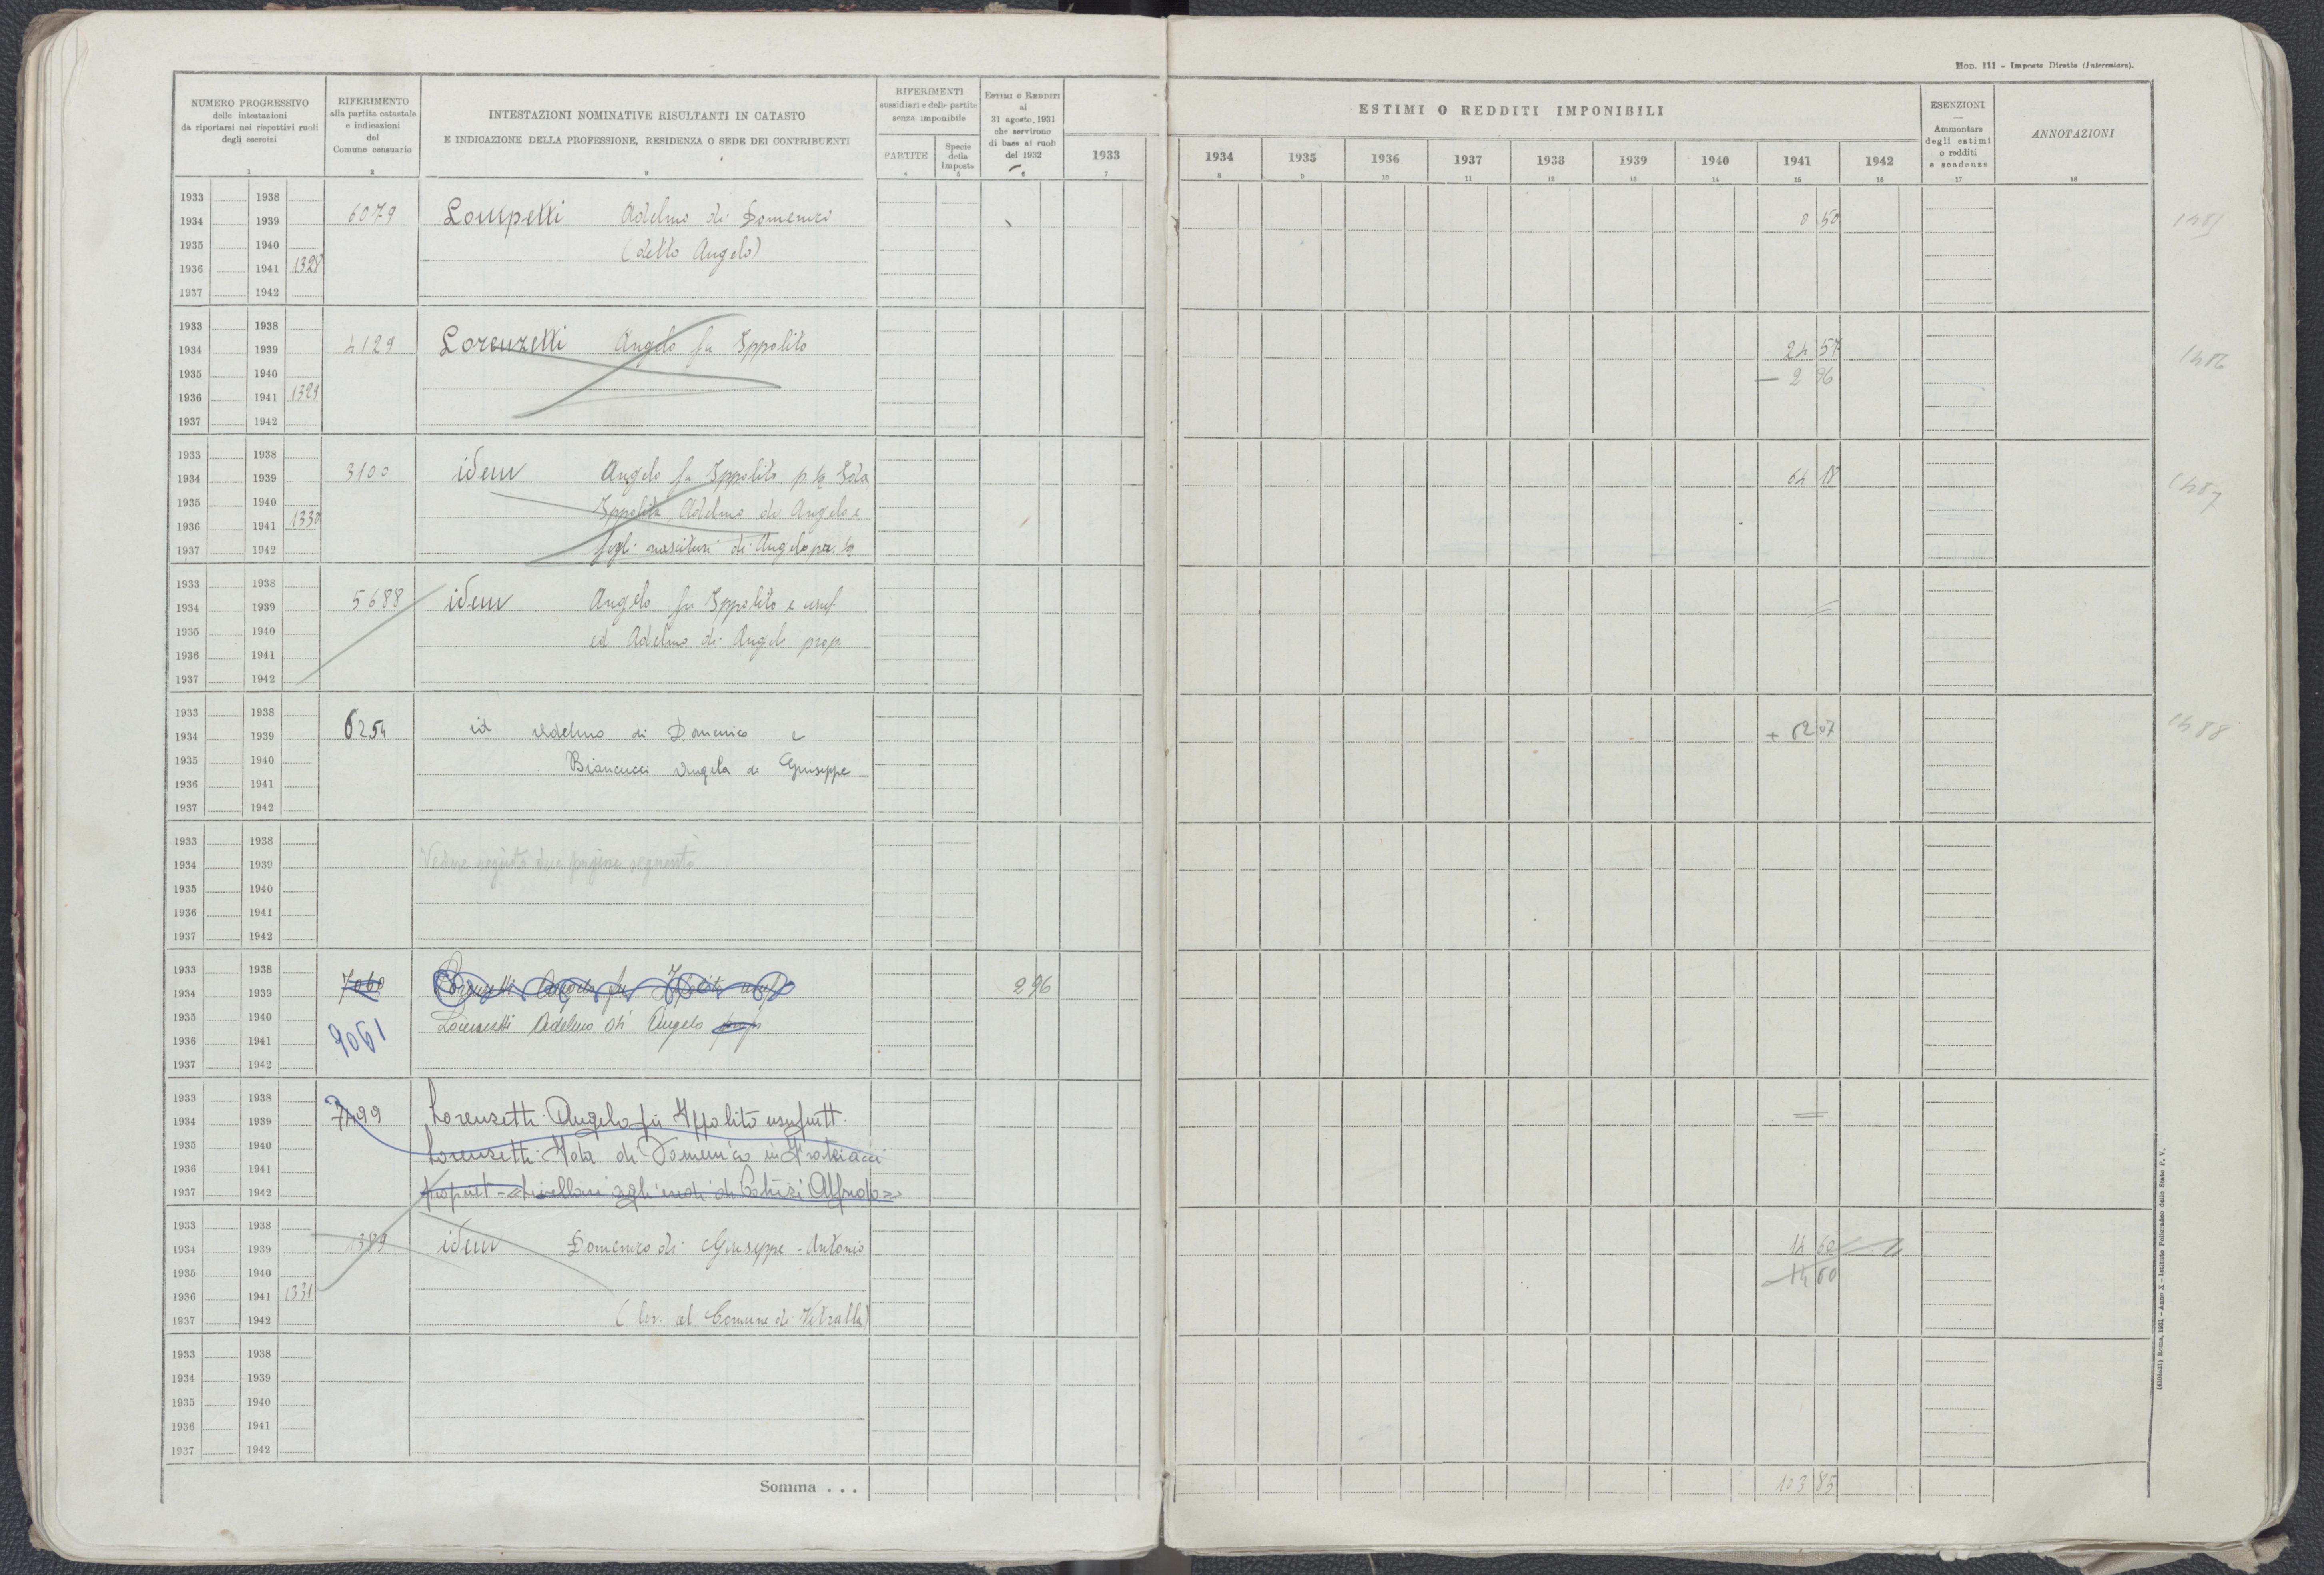 Mod. 111 - Imposte Dirette (Intercalare).
NUMERO PROGRESSIVO
delle intestazioni
da riportarsi nei rispettivi ruoli
degli esercizi
1
RIFERIMENTO
alla partita catastale
e indicazioni
del
Comune censuario
2
INTESTAZIONI NOMINATIVE RISULTANTI IN CATASTO
E INDICAZIONE DELLA PROFESSIONE, RESIDENZA O SEDE DEI CONTRIBUENTI
3
RIFERIMENTI
sussidiari e delle partite
senza imponibile
PARTITE
4
Specie
della
imposta
5
ESTIMI O REDDITI
al
31 agosto 1931
che servirono
di base ai ruoli
del 1932
6
ESTIMI O REDDITI IMPONIBILI
1933 1934 1935 1936 1937 1938 1939 1940 1941 1942
7 8 9 10 11 12 13 14 15 16
ESENZIONI
—
Ammontare
degli estimi
o redditi
e scadenze
17
ANNOTAZIONI
18
1933 1938
1934 1939 6079 Lompetti Adelmo di Domenico 0 50
1935 1940 (detto Angelo)
1936 1941 1328
1937 1942
1933 1938
1934 1939 4129 Lorenzetti Angelo fu Ippolito 24 57
1935 1940 — 2 96
1936 1941 1329
1937 1942
1933 1938
1934 1939 3100 idem Angelo fu Ippolito p ½ Ida 64 18
1935 1940 Ippolita, Adelmo di Angelo e
1936 1941 1330
1937 1942 figli nascituri di Angelo per ½
1933 1938
1934 1939 5688 idem Angelo fu Ippolito e usuf
1935 1940 ed Adelmo di Angelo prop
1936 1941
1937 1942
1933 1938
1934 1939 6254 id Adelmo di Domenico e
1935 1940 Biancucci Angela di Giuseppe
1936 1941
1937 1942
1933 1938
1934 1939 Vedere seguito due pagine seguenti
1935 1940
1936 1941
1937 1942
1933 1938
1934 1939 7060 Lorenzetti Angelo fu Ippolito usuf 2 96
1935 1940 Lorenzetti Adelmo di Angelo prop
1936 1941 9061
1937 1942
1933 1938
1934 1939 7499 Lorenzetti Angelo fu Ippolito usufrutt.
1935 1940 Lorenzetti Ida di Domenico in
1936 1941
1937 1942 propriet - livellari agli eredi di Patrizi Alfredo
1933 1938
1934 1939 1389 idem Domenico di Giuseppe - Antonio 14 60
1935 1940 — 14 60
1936 1941 1331
1937 1942 (liv. al Comune di Vetralla)
1933 1938
1934 1939
1935 1940
1936 1941
1937 1942
Somma . . . 103 85
1485
1486
1487
1488